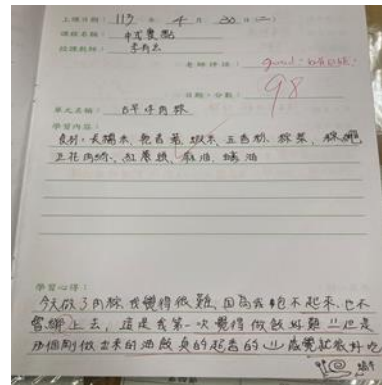 上課日期：113 年 4 月 30 日(二)
課程名稱：中式餐點
授課教師：李
老師評語：good!
日期、分數：98
單元名稱：古早味肉粽
學習內容：
食材：長糯米、乾香菇、蝦米、五香粉、粽葉、粽繩
五花肉絲、紅蔥頭、麻油、蠔油
學習心得：
今天做了肉粽，我覺得很難，因為我包不起來，也不
會綁上去，這是我第一次覺得做飯好難 但是
那個剛做出來的油飯真的超香的 感覺就很好吃